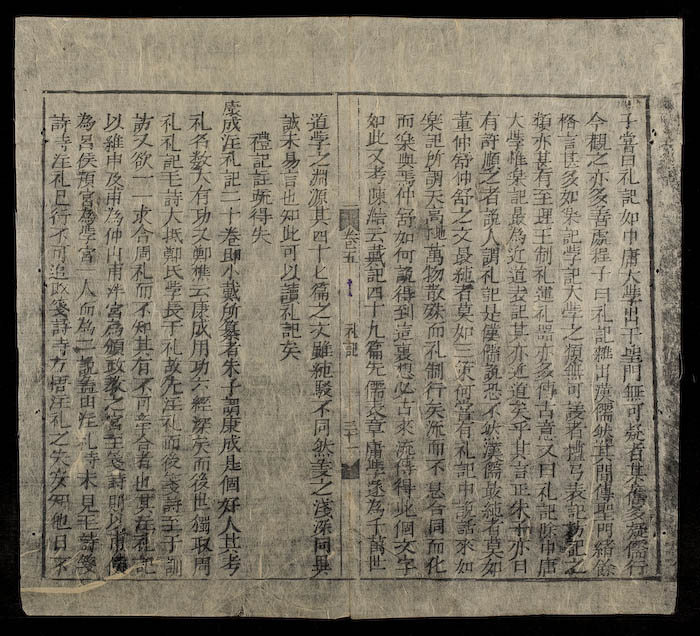 子嘗曰礼記如中庸大學出于聖門無可疑者其舊多疑儒行
今觀之亦多善處程子曰礼記雜出漢儒然其間傳聖門緒餘
格言甚多如樂記學記大學之類無可議者檀弓表記坊記之
類亦甚有至理王制礼運礼器亦多傳古意又曰礼記除中庸
大學惟樂記最為近道表記其亦近道矣乎其言正朱子亦曰
有許順之者說人謂礼記是漢儒說恐不然漢儒最純者莫如
董仲舒仲舒之文最純者莫如三策何嘗有礼記中說話來如
樂記所謂天高地下萬物散殊而礼制行矣流而不息合同而化
而樂興焉仲舒如何說得到這裏想必古來流傳得此個文字
如此又考陳澔云戴記四十九篇先儒表章庸學遂為千萬世
卷五
礼記
三十一
道學之淵源其四十七篇之文雖純駁不同然義之淺深同異
誠未易言也知此可以讀礼記矣
禮記註疏得失
康成注礼記二十卷即小戴所纂者朱子謂康成是個好人其考
礼名數大有功又鄭樵云康成用功六經深矣而後世獨取周
礼礼記毛詩人抵鄭氏學長于礼故先注礼而後箋詩至于訓
詁又欲一一求合周礼而不知其有不可牽合者也其注礼記
以維申及甫為仲山甫泮宮為頒政教之宮至箋詩則以甫侯
為呂侯頖宮為學宮一人而為二說盖由注礼時未見毛詩箋
詩時注礼已行不可追改箋詩時方悟注礼之失安知他日不